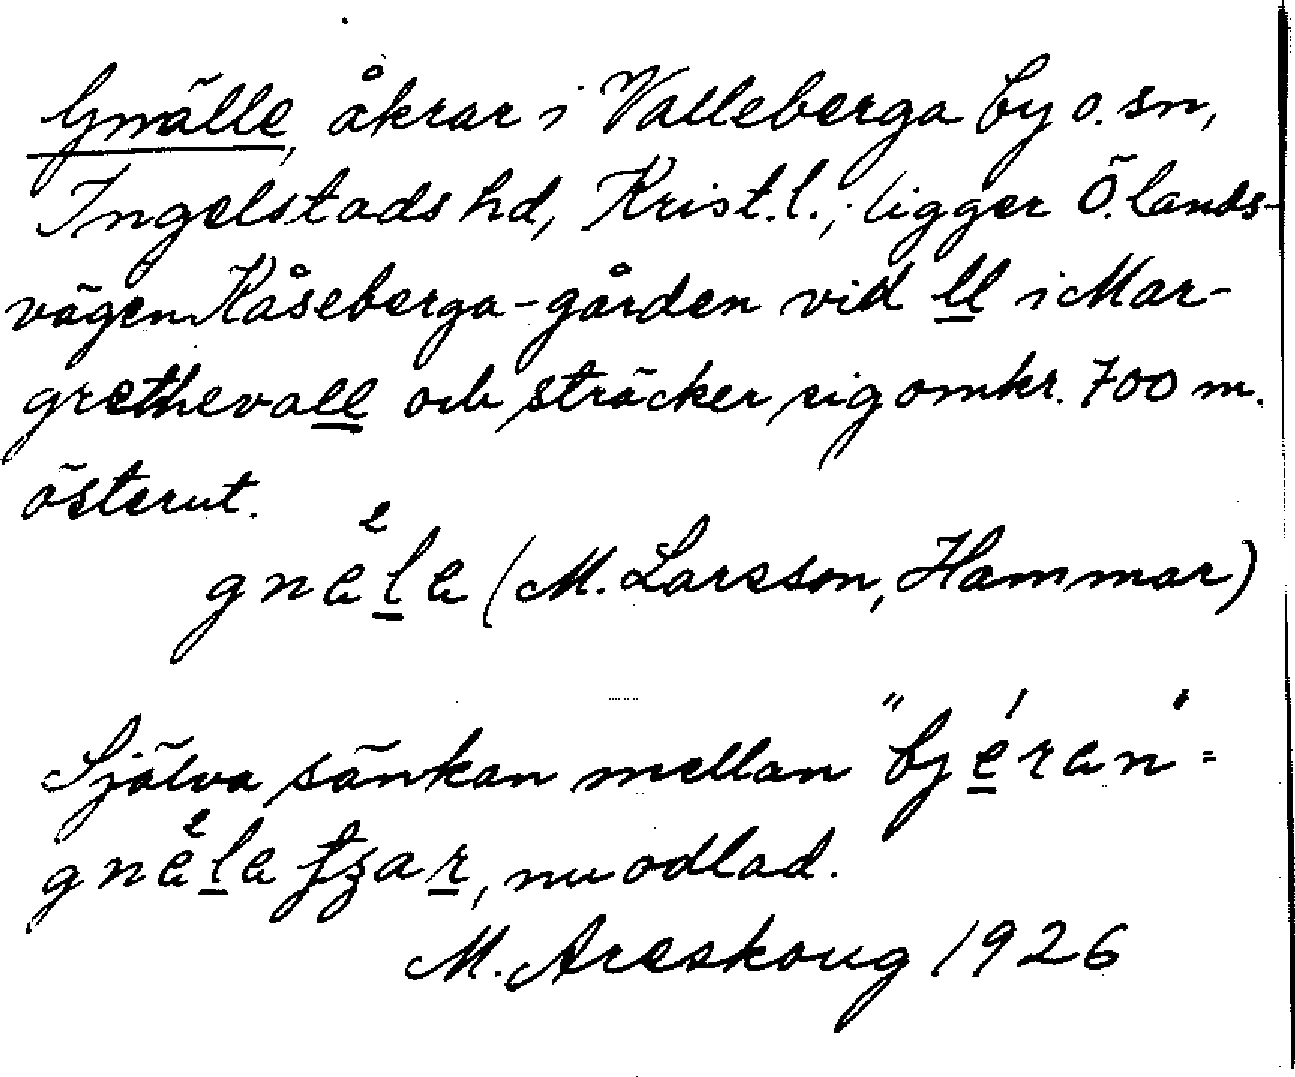 Gnälle, åkrar i Valleberga by o. sn,
Ingelstads hd, Krist. l.; ligger Ö. lands-
vägen Kåseberga-gården vid ll i Mar-
grethevall och sträcker sig omkr. 700 m.
österut.
gnela (M. Larsson, Hammar)
Själva sänkan mellan "bjéran" =
, nu odlad.
M. Areskoug 1926